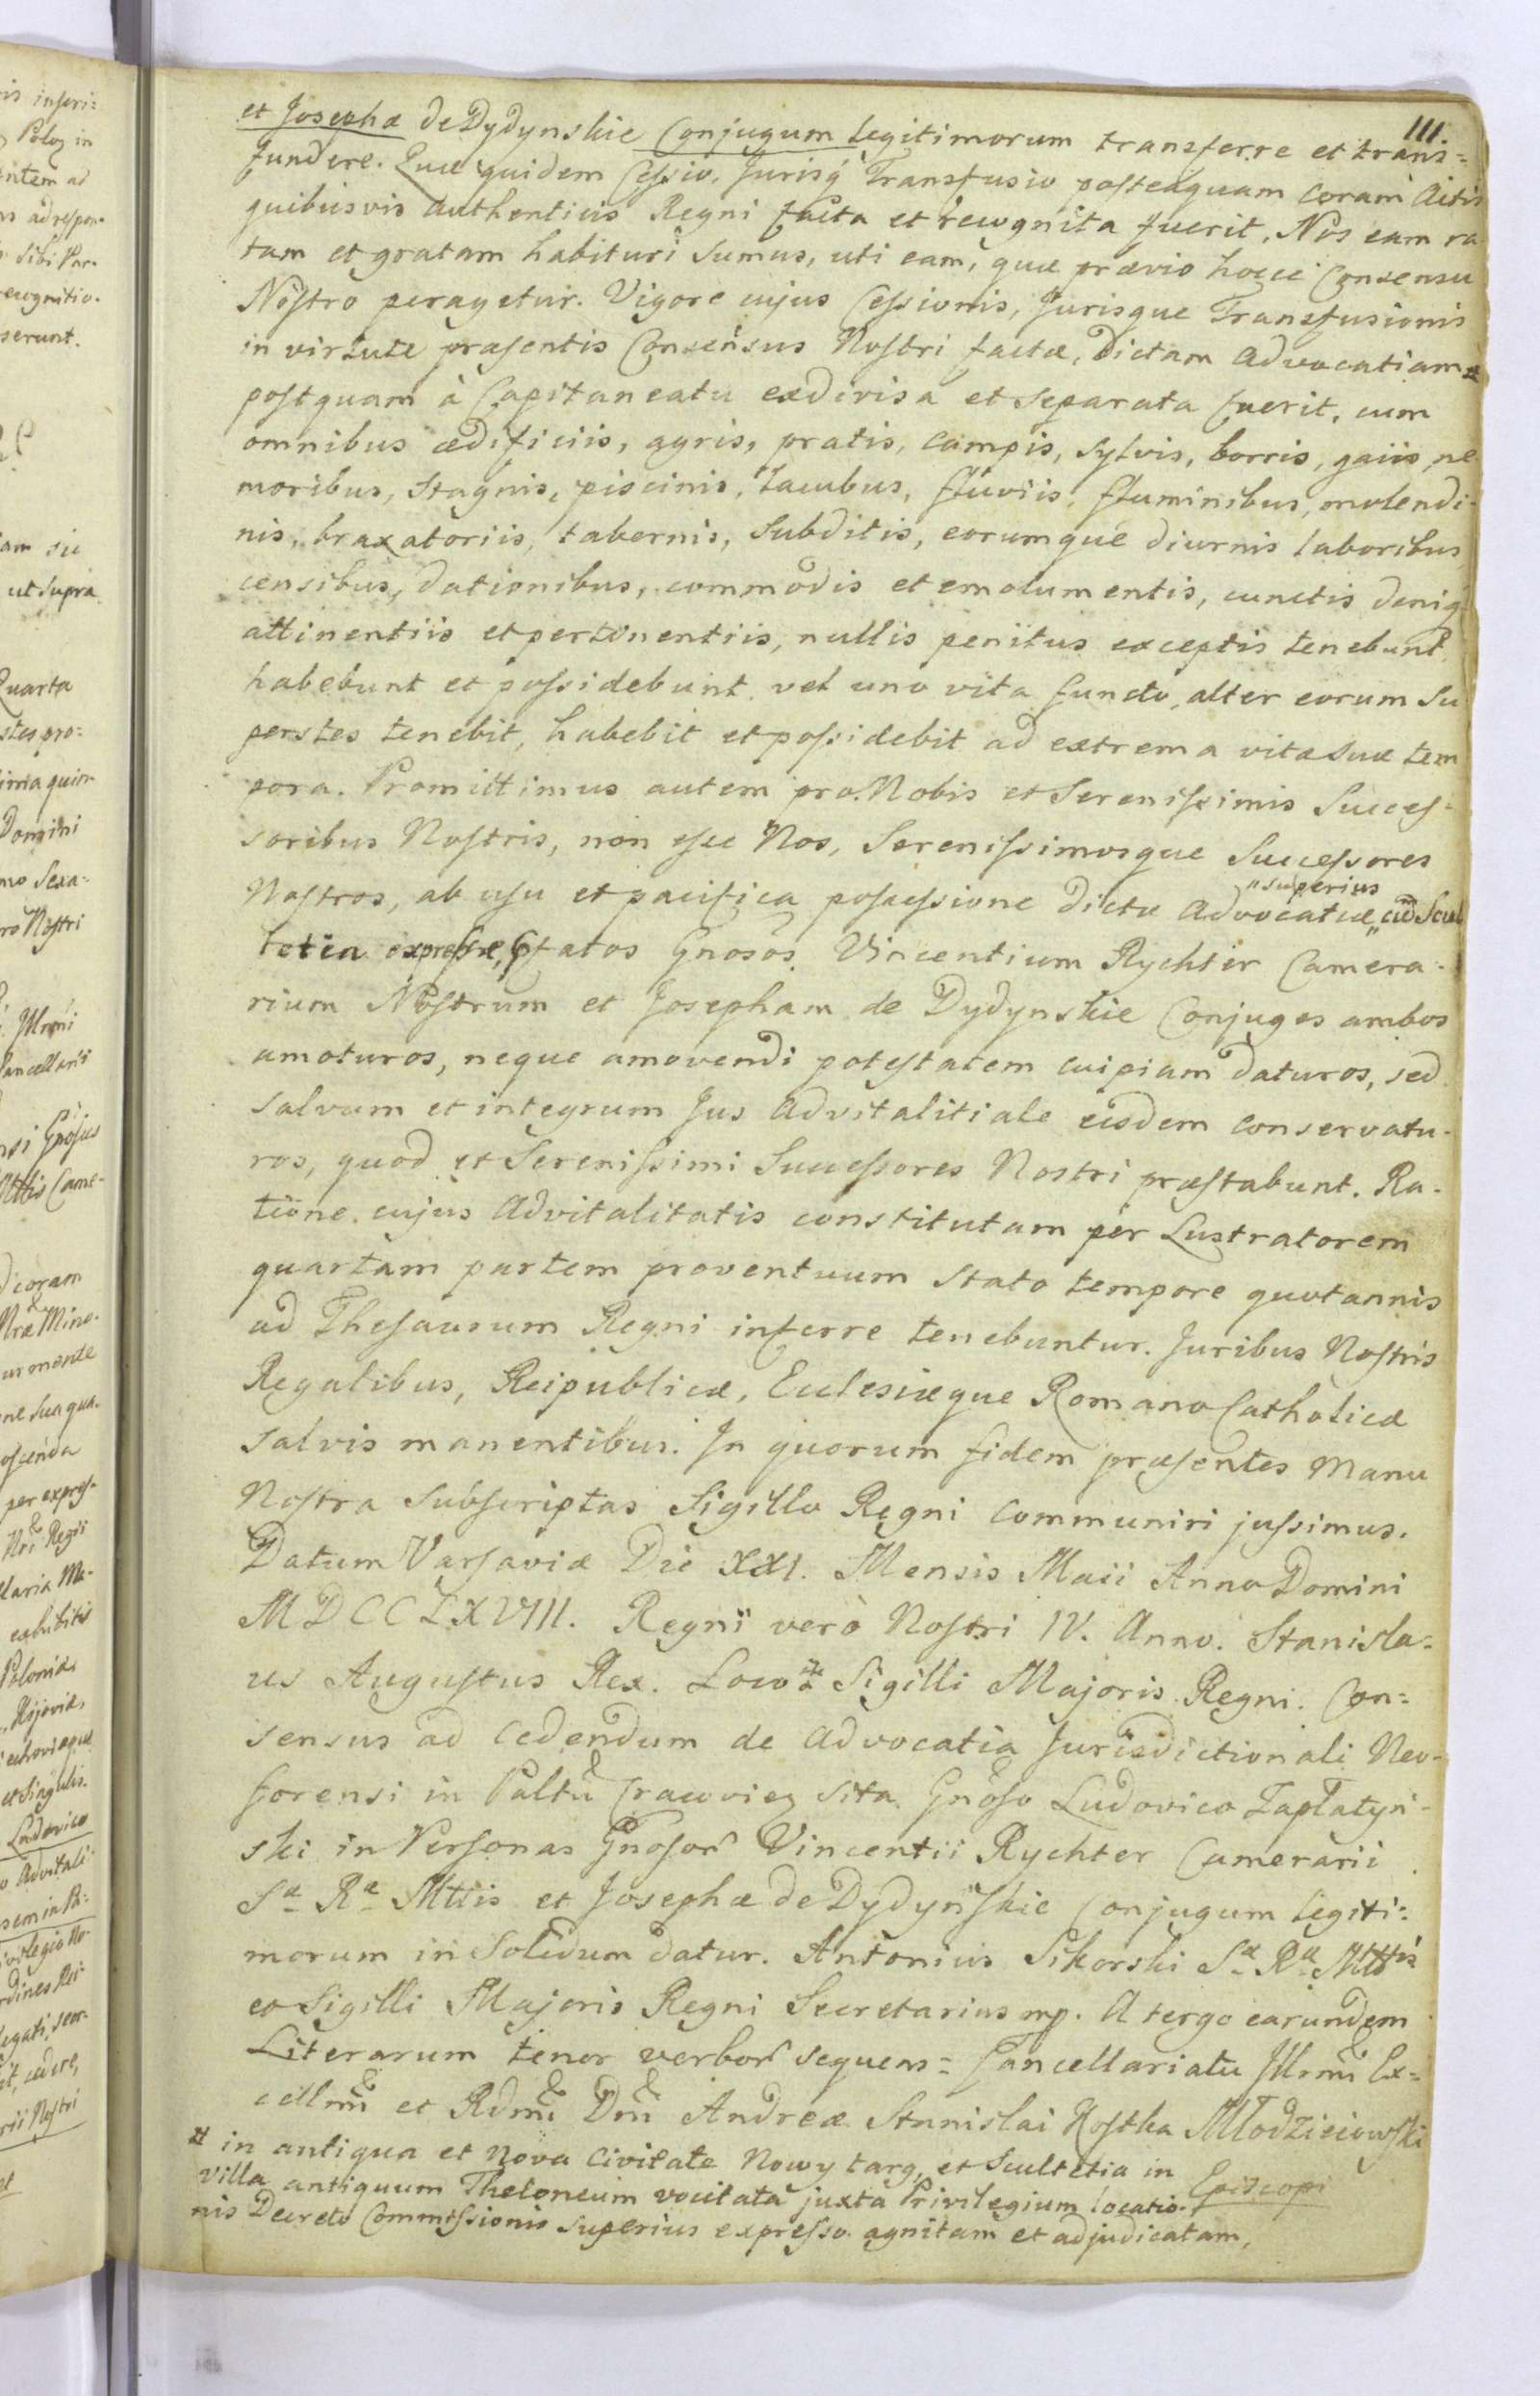 111.
et Josephæ de Dydynskie Conjugum legitimorum transferre et trans=
fundere. Quæ quidem Cessio, Jurisq́ Transfusio posteaquam coram Actis
quibusvis authenticis Regni facta et recognita fuerit, Nos eam ra
tam et gratam habituri sumus, uti eam, quæ prævio hocce Consensu
Nostro peragetur. Vigore cujus Cessionis, Jurisque Transfusionis
in virtute præsentis Consensus Nostri factæ, dictam Advocatiam #
postquam à Capitaneatu exdivisa et separata fuerit, cum
omnibus ædificiis, agris, pratis, campis, sylvis, borris, gaiis, ne
moribus, stagnis, piscinis, lacubus, fluviis, fluminibus, molendi-
nis, braxatoriis, tabernis, subditis, eorumque diurnis laboribus,
censibus, dationibus, commodis et emolumentis, cunctis deniq́
attinentiis et pertinentiis, nullis penitus exceptis tenebunt
habebunt et possidebunt vel uno vita functo, alter eorum su
perstes tenebit, habebit et possidebit ad extrema vitæ suæ tem
pora. Promittimus autem pro Nobis et Serenissimis Succes=
soribus Nostris, non esse Nos, Serenissimosque Successores
Nostros, ab usu et pacifica possessione dictæ Advocatiæ „ cũ Scul
„superius
tetia expressæ, p̃fatos Gnosos Vincentium Rychter Camera-
rium Nostrum et Josepham de Dydynskie Conjuges ambos
amoturos, neque amovendi potestatem cuipiam daturos, sed
salvum et integrum Jus Advitalitiale eisdem conservatu-
ros, quod et Serenissimi Successores Nostri præstabunt. Ra-
tione cujus Advitalitatis constitutam per Lustratorem
quartam partem proventuum stato tempore quotannis
ad Thesaurum Regni inferre tenebuntur. Juribus Nostris
Regalibus, Reipublicæ, Eclesiæque Romano Catholicæ
salvis manentibus. In quorum fidem præsentes Manu
Nostra subscriptas Sigillo Regni communiri jussimus.
Datum Varsaviæ Die XXI. Mensis Maii Anno Domini
MDCCLXVIII. Regni verò Nostri IV. Anno. Stanisla=
us Augustus Rex. Locus Sigilli Majoris Regni. Con=
sensus ad cedendum de Advocatia Jurisdictionali Neo-
forensi in Paltũ Cracovien sita Gnoso Ludovico Zaplatyń-
ski in Personas Gnosor̃ Vincentii Rychter Camerarii
Sæ Ræ Mttis et Josephæ de Dydyńskie Conjugum legiti=
morum in solidum datur. Antonius Sikorski Sæ Ræ Mttis
et Sigilli Majoris Regni Secretarius mp. A tergo earundem
Literarum tenor verbor̃ sequens= Cancellariatu Illrmi Ex=
cellmi et Rdmi Dni Andreæ Stanislai Kostka Młodzieiowski
Episcopi
# in antiqua et nova Civitate Nowy targ, et Scultetia in
villa antiquum Theloneum vocitata juxta Privilegium locatio-
nis Decreto Commissionis superius expresso agnitam et adjudicatam,